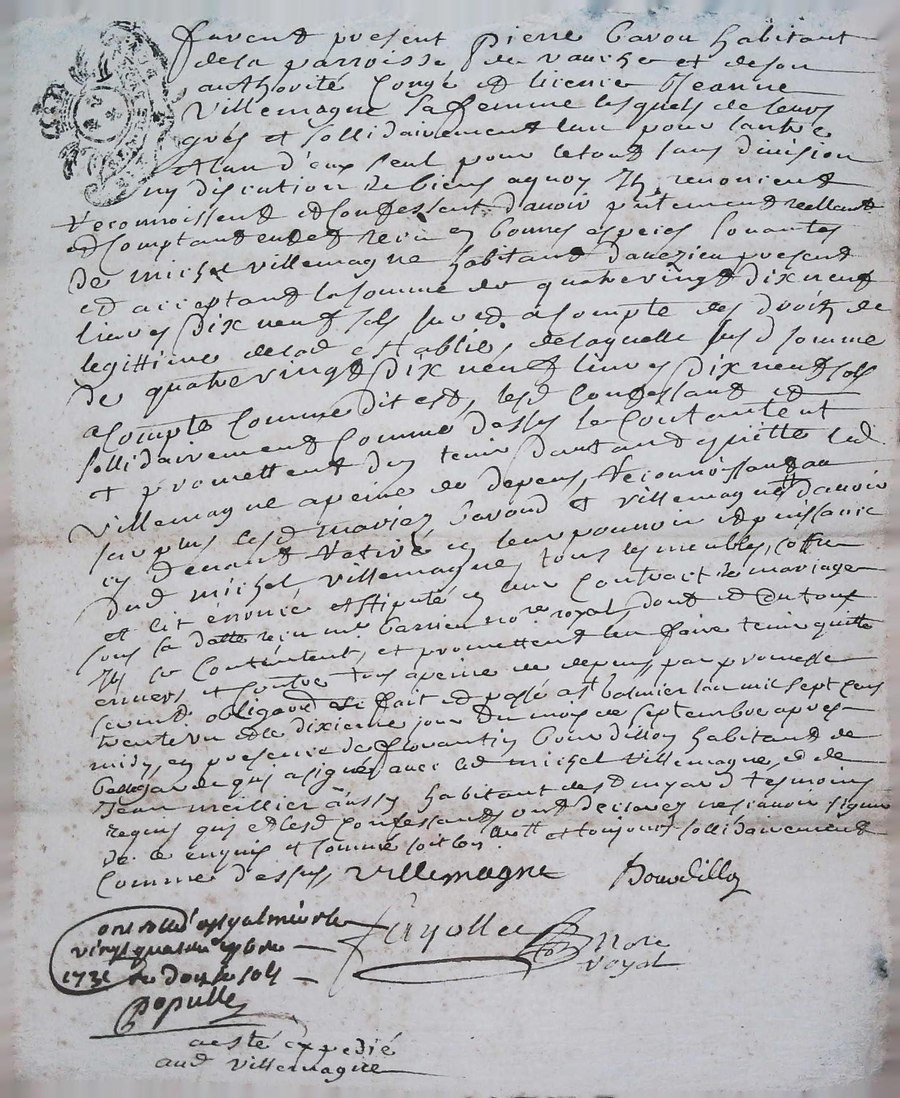 furent present Pierre Cavou habitant
de la parroisse de vauche et de son
authorité congé et licence Jeanne
Villemagne sa femme lesquels de leurs
grés et sollidairement lun pour lautre
et lun d'eux seul pour le tout sans division
ny discution de biens aquoy Ils renoncent
reconnoissent et confessent d'avoir pntement reellemt
et comptant eu et receu en bonnes especes Couantes
de michel villemagne habitant davezieu present
et acceptant la somme de quatrevingt dix neuf
livres dix neuf sols sur et acompte des droits de
legittime de lad establie, de laquelle susd somme
de quatrevingt dix neuf livres dix neuf sols
acompte comme dit est, lesd confessant et
sollidairement comme dessus se contantent
et promettent d'en tenir dautand quitte led
villemagne apeine de depens, Reconnoissant au
surplus lesd mariez Cavoud et villemagne d'avoir
cy devant Retiré en leur pouvoir et puissance
dud michel villemagne tous les meubles, coffre
et lit énoncé et stipulé en leur contract de mariage
sous sa datte receu me Carrieu nore royal, dont et du tout
Ils se contentent, et promettent len faire tenir quitte
envers et contre tous apeine de depens, par promesse
serment obligaon fait et passé a st balmier lan mil sept cens
trente un et le dixieme jour du mois de septembre apres
midy, en presence de florantin Bourdillon habitant de
bellegarde qui a signé avec led michel villemagne, et de
Jean meillier aussy habitant des myard temoins
requis qui et lesd confessants ont declarez ne scavoir signer
de ce enquis et sommé et toujours sollidairement
comme dessus, villemagne Bourdillon
Fayolle nore
royal
controllé a st galmier le
vingt quatre 7bre
1731 Re douze sols
Populle
a esté expedié
aud villemagne